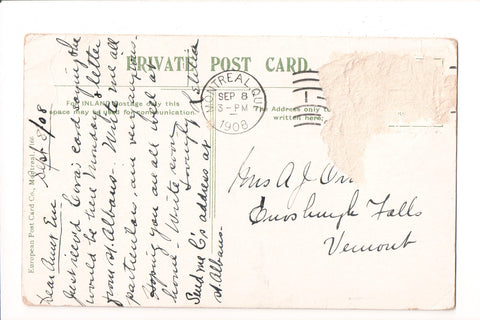 PRIVATE POST CARD.
For INLAND Postage only this
space may be used for communication.
The Address only to
written here;
MONTREAL QUE
SEP 8
3-PM
1908
European Post Card Co., Montreal, Que.
Sept 8/08
Dear Aunt Em
Just rec'd Cora's card saying she
would be there Monday & letter
from St. Albans. Write me all
particulars, am very anxious.
Hoping you are all well at
home. Write soon
Lovingly Letitia
Send me C's address at
St. Albans.
Mrs A. J.
Enosburgh Falls
Vermont